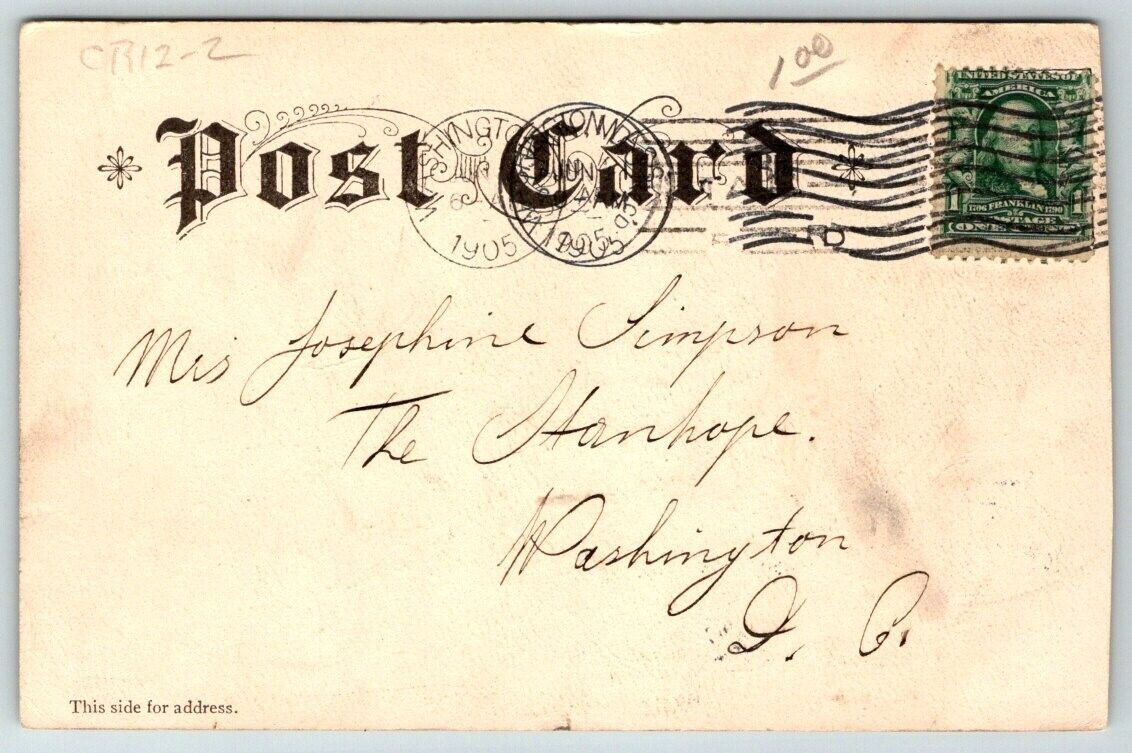 CR12-2
1 00
Post Card
WASHINGTON
JUN
1905
1905
UNITED STATES OF
AMERICA
1706 FRANKLIN 1790
POSTAGE
ONE CENT
Mis Josephine Simpson
The Stanhope.
Washington
D. C.
This side for address.